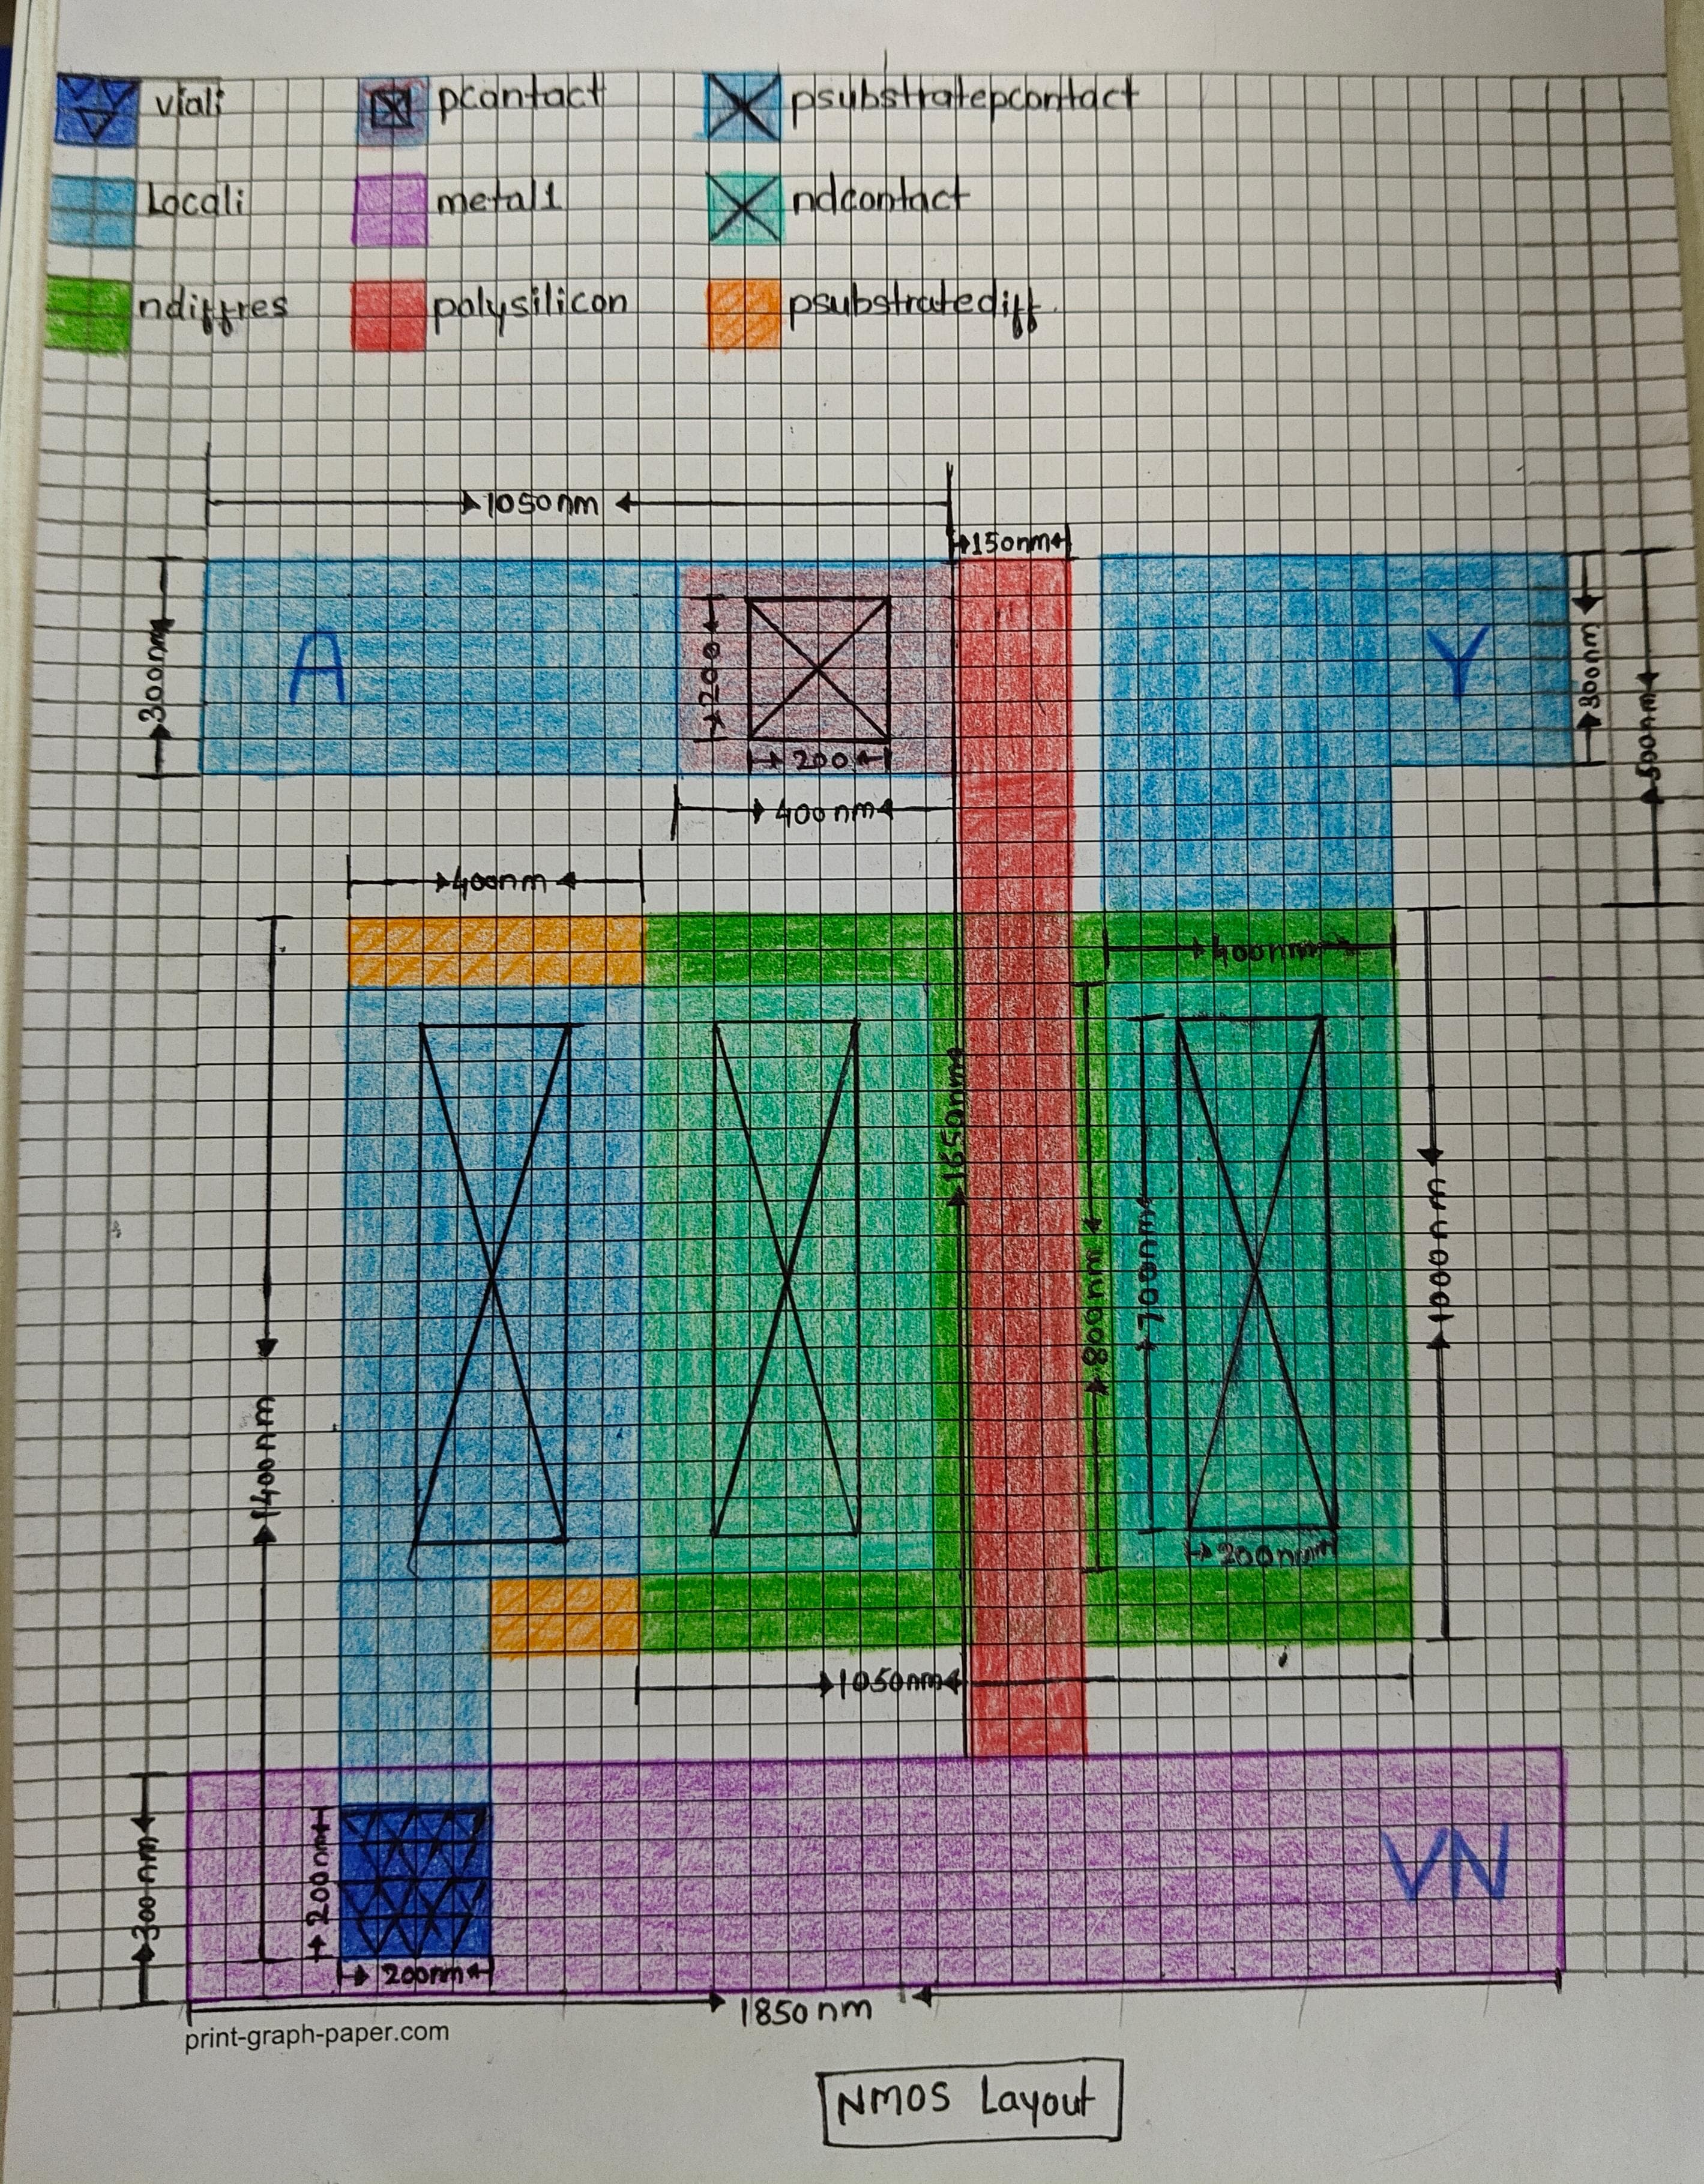 viali pcontact psubstratepcontact
Locali metal1 ndcontact
ndiffres polysilicon psubstratediff.
1050nm
150nm
300nm
A
200
200
400nm
Y
300nm
500nm
400nm
400nm
1650nm
800nm
700nm
1000nm
1400nm
200nm
1050nm
300nm
200nm
200nm
VN
1850nm
print-graph-paper.com
NMOS Layout